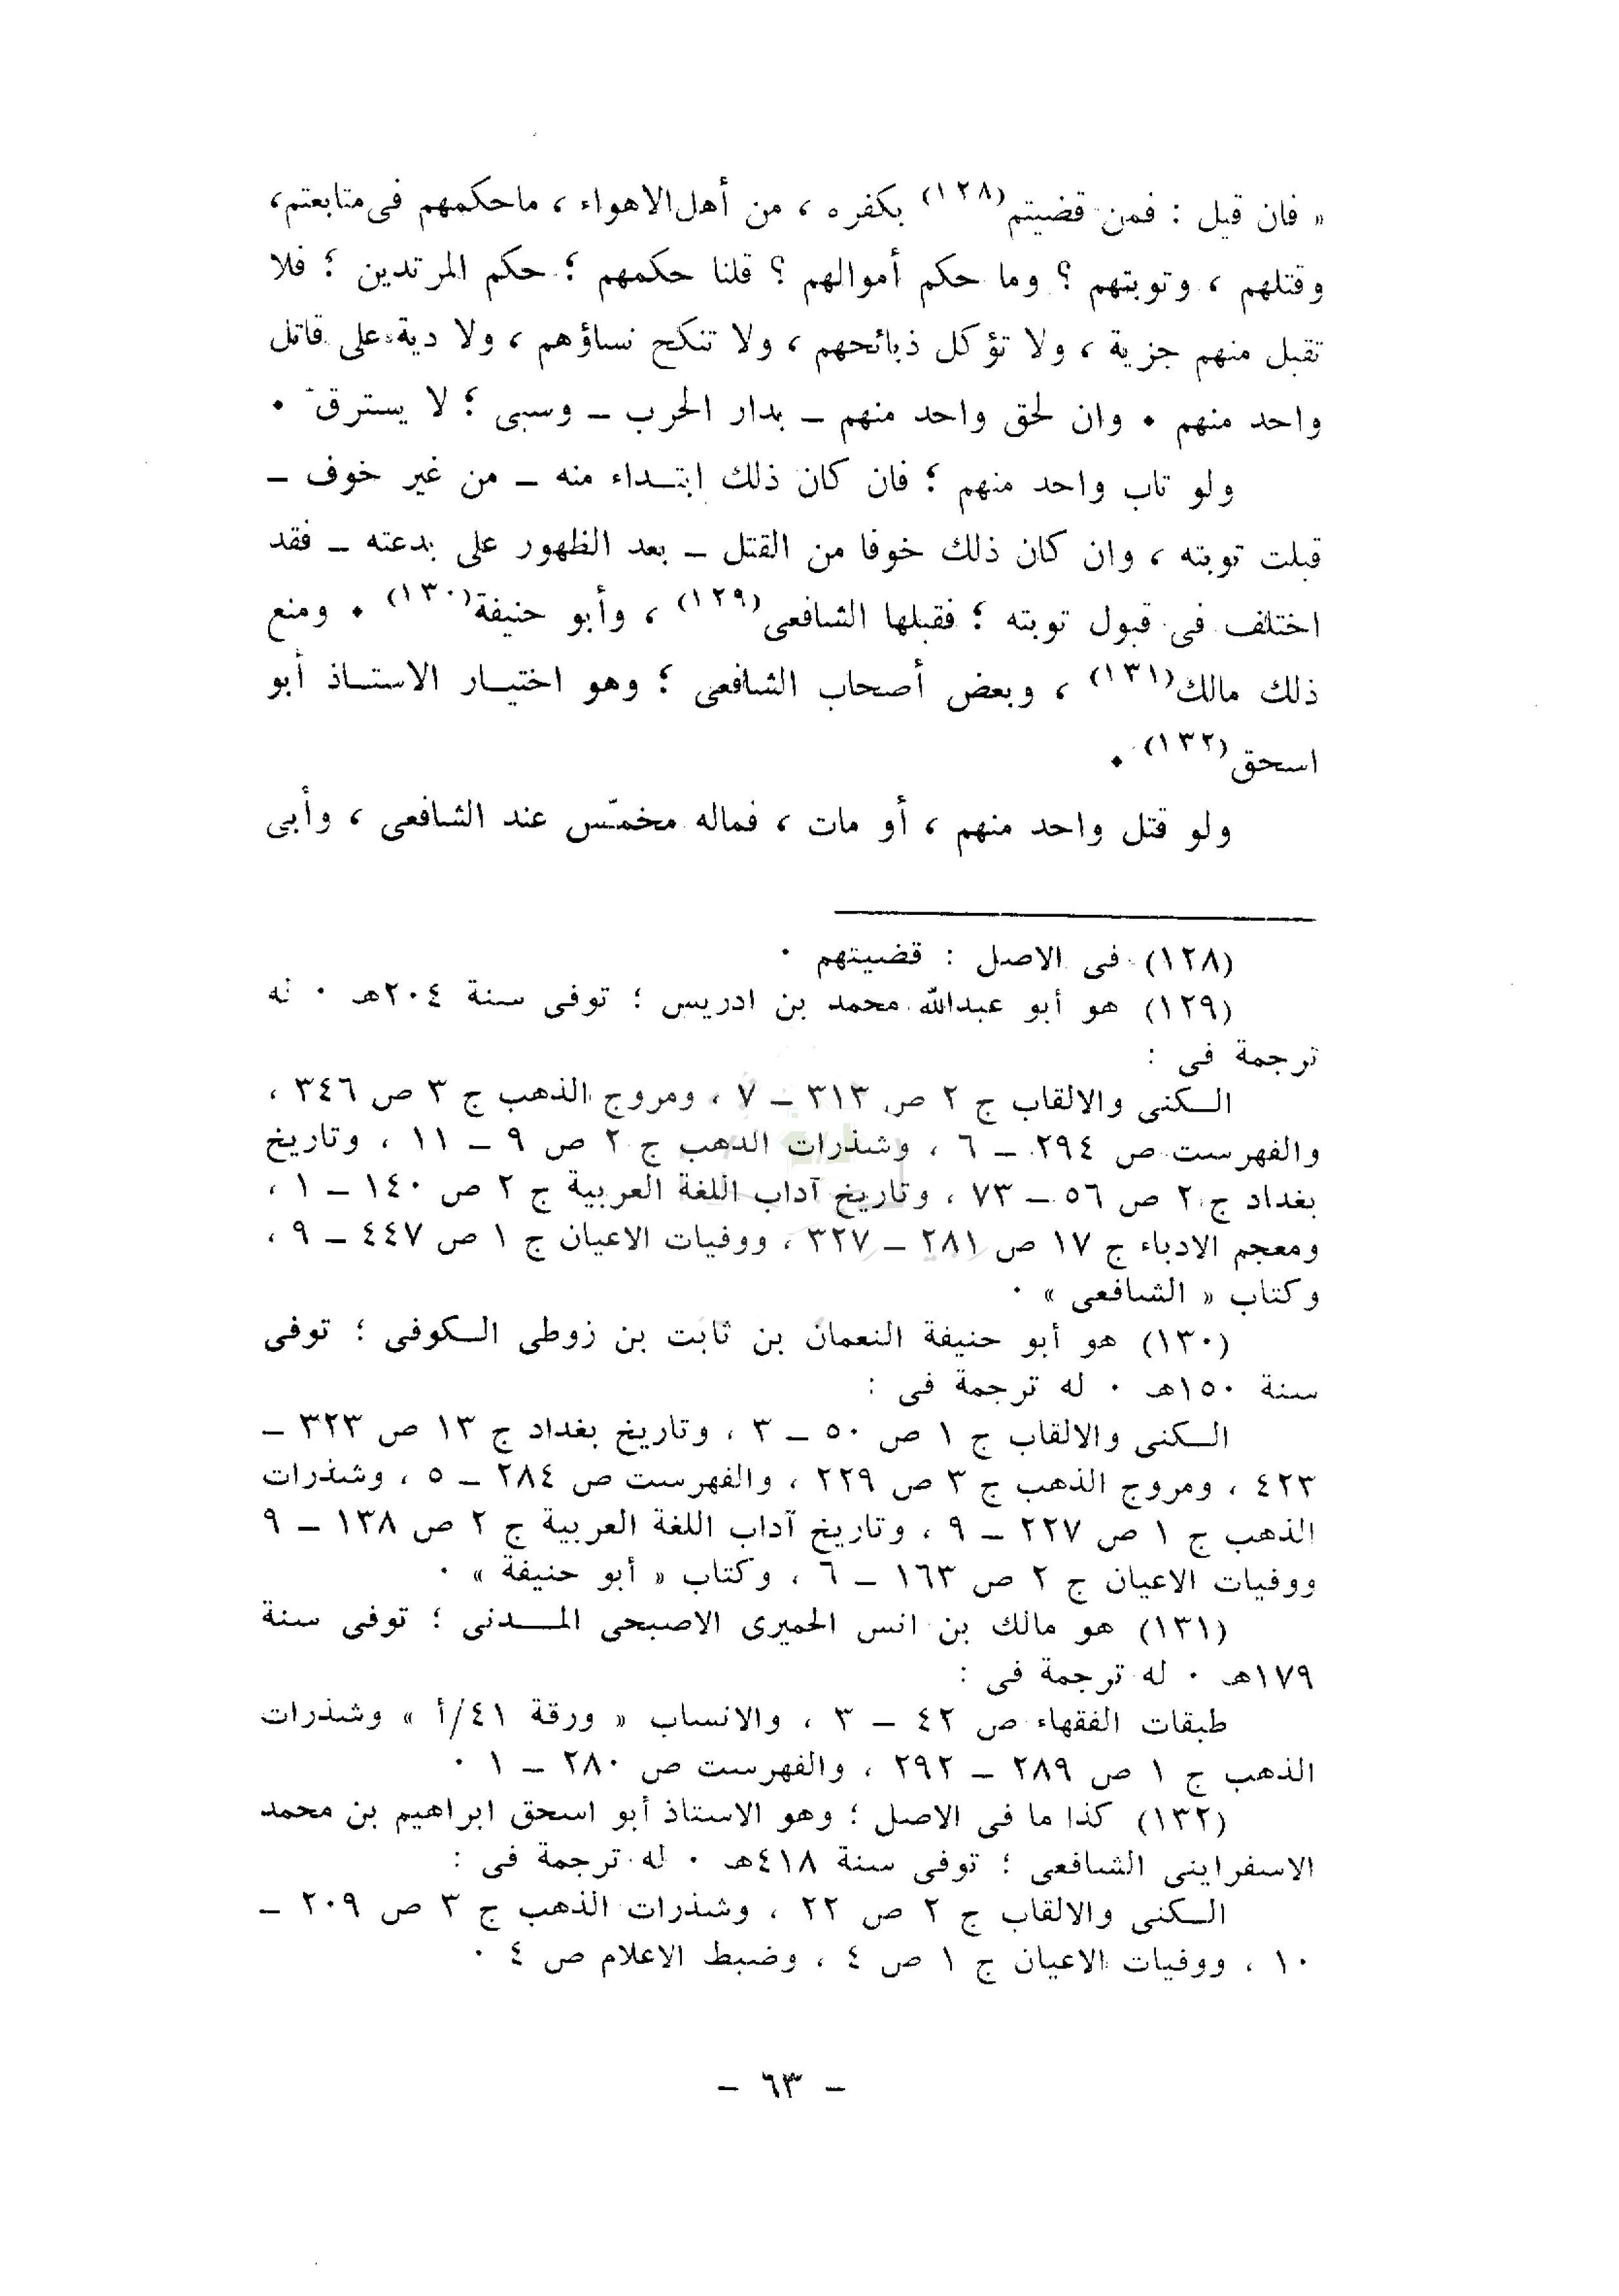 « فان قيل : فمن قضيتم(١٢٨) بكفره ، من أهل الاهواء ، ماحكمهم فى متابعتم،
وقتلهم ، وتوبتهم ؟ وما حكم أموالهم ؟ قلنا حكمهم ؛ حكم المرتدين ؛ فلا
تقبل منهم جزية ، ولا تؤكل ذبائحهم ، ولا تنكح نساؤهم ، ولا دية على قاتل
واحد منهم . وان لحق واحد منهم – بدار الحرب – وسبى ؛ لا يسترق .
ولو تاب واحد منهم ؛ فان كان ذلك ابتــداء منه – من غير خوف –
قبلت توبته ، وان كان ذلك خوفا من القتل – بعد الظهور على بدعته – فقد
اختلف فى قبول توبته ؛ فقبلها الشافعى(١٢٩) ، وأبو حنيفة(١٣٠) . ومنع
ذلك مالك(١٣١) ، وبعض أصحاب الشافعى ؛ وهو اختيــار الاستــاذ أبو
اسحق(١٣٢) .
ولو قتل واحد منهم ، أو مات ، فماله مخمّس عند الشافعى ، وأبى
(١٢٨) فى الاصل : قضيتهم .
(١٢٩) هو أبو عبدالله محمد بن ادريس ؛ توفى سنة ٢٠٤هـ . له
ترجمة فى :
الــكنى والالقاب ج ٢ ص ٣١٣ – ٧ ، ومروج الذهب ج ٣ ص ٣٤٦ ،
والفهرست ص ٢٩٤ – ٦ ، وشذرات الذهب ج ٢ ص ٩ – ١١ ، وتاريخ
بغداد ج ٢ ص ٥٦ – ٧٣ ، وتاريخ آداب اللغة العربية ج ٢ ص ١٤٠ – ١ ،
ومعجم الادباء ج ١٧ ص ٢٨١ – ٣٢٧ ، ووفيات الاعيان ج ١ ص ٤٤٧ – ٩ ،
وكتاب « الشافعى » .
(١٣٠) هو أبو حنيفة النعمان بن ثابت بن زوطى الــكوفى ؛ توفى
سنة ١٥٠هـ . له ترجمة فى :
الــكنى والالقاب ج ١ ص ٥٠ – ٣ ، وتاريخ بغداد ج ١٣ ص ٣٢٣ –
٤٢٣ ، ومروج الذهب ج ٣ ص ٢٢٩ ، والفهرست ص ٢٨٤ – ٥ ، وشذرات
الذهب ج ١ ص ٢٢٧ – ٩ ، وتاريخ آداب اللغة العربية ج ٢ ص ١٣٨ – ٩
ووفيات الاعيان ج ٢ ص ١٦٣ – ٦ ، وكتاب « أبو حنيفة » .
(١٣١) هو مالك بن انس الحميرى الاصبحى المــدنى ؛ توفى سنة
١٧٩هـ . له ترجمة فى :
طبقات الفقهاء ص ٤٢ – ٣ ، والانساب « ورقة ٤١/أ » وشذرات
الذهب ج ١ ص ٢٨٩ – ٢٩٢ ، والفهرست ص ٢٨٠ – ١ .
(١٣٢) كذا ما فى الاصل ؛ وهو الاستاذ أبو اسحق ابراهيم بن محمد
الاسفراينى الشافعى ؛ توفى سنة ٤١٨هـ . له ترجمة فى :
الــكنى والالقاب ج ٢ ص ٢٢ ، وشذرات الذهب ج ٣ ص ٢٠٩ –
١٠ ، ووفيات الاعيان ج ١ ص ٤ ، وضبط الاعلام ص ٤ .
– ٦٣ –